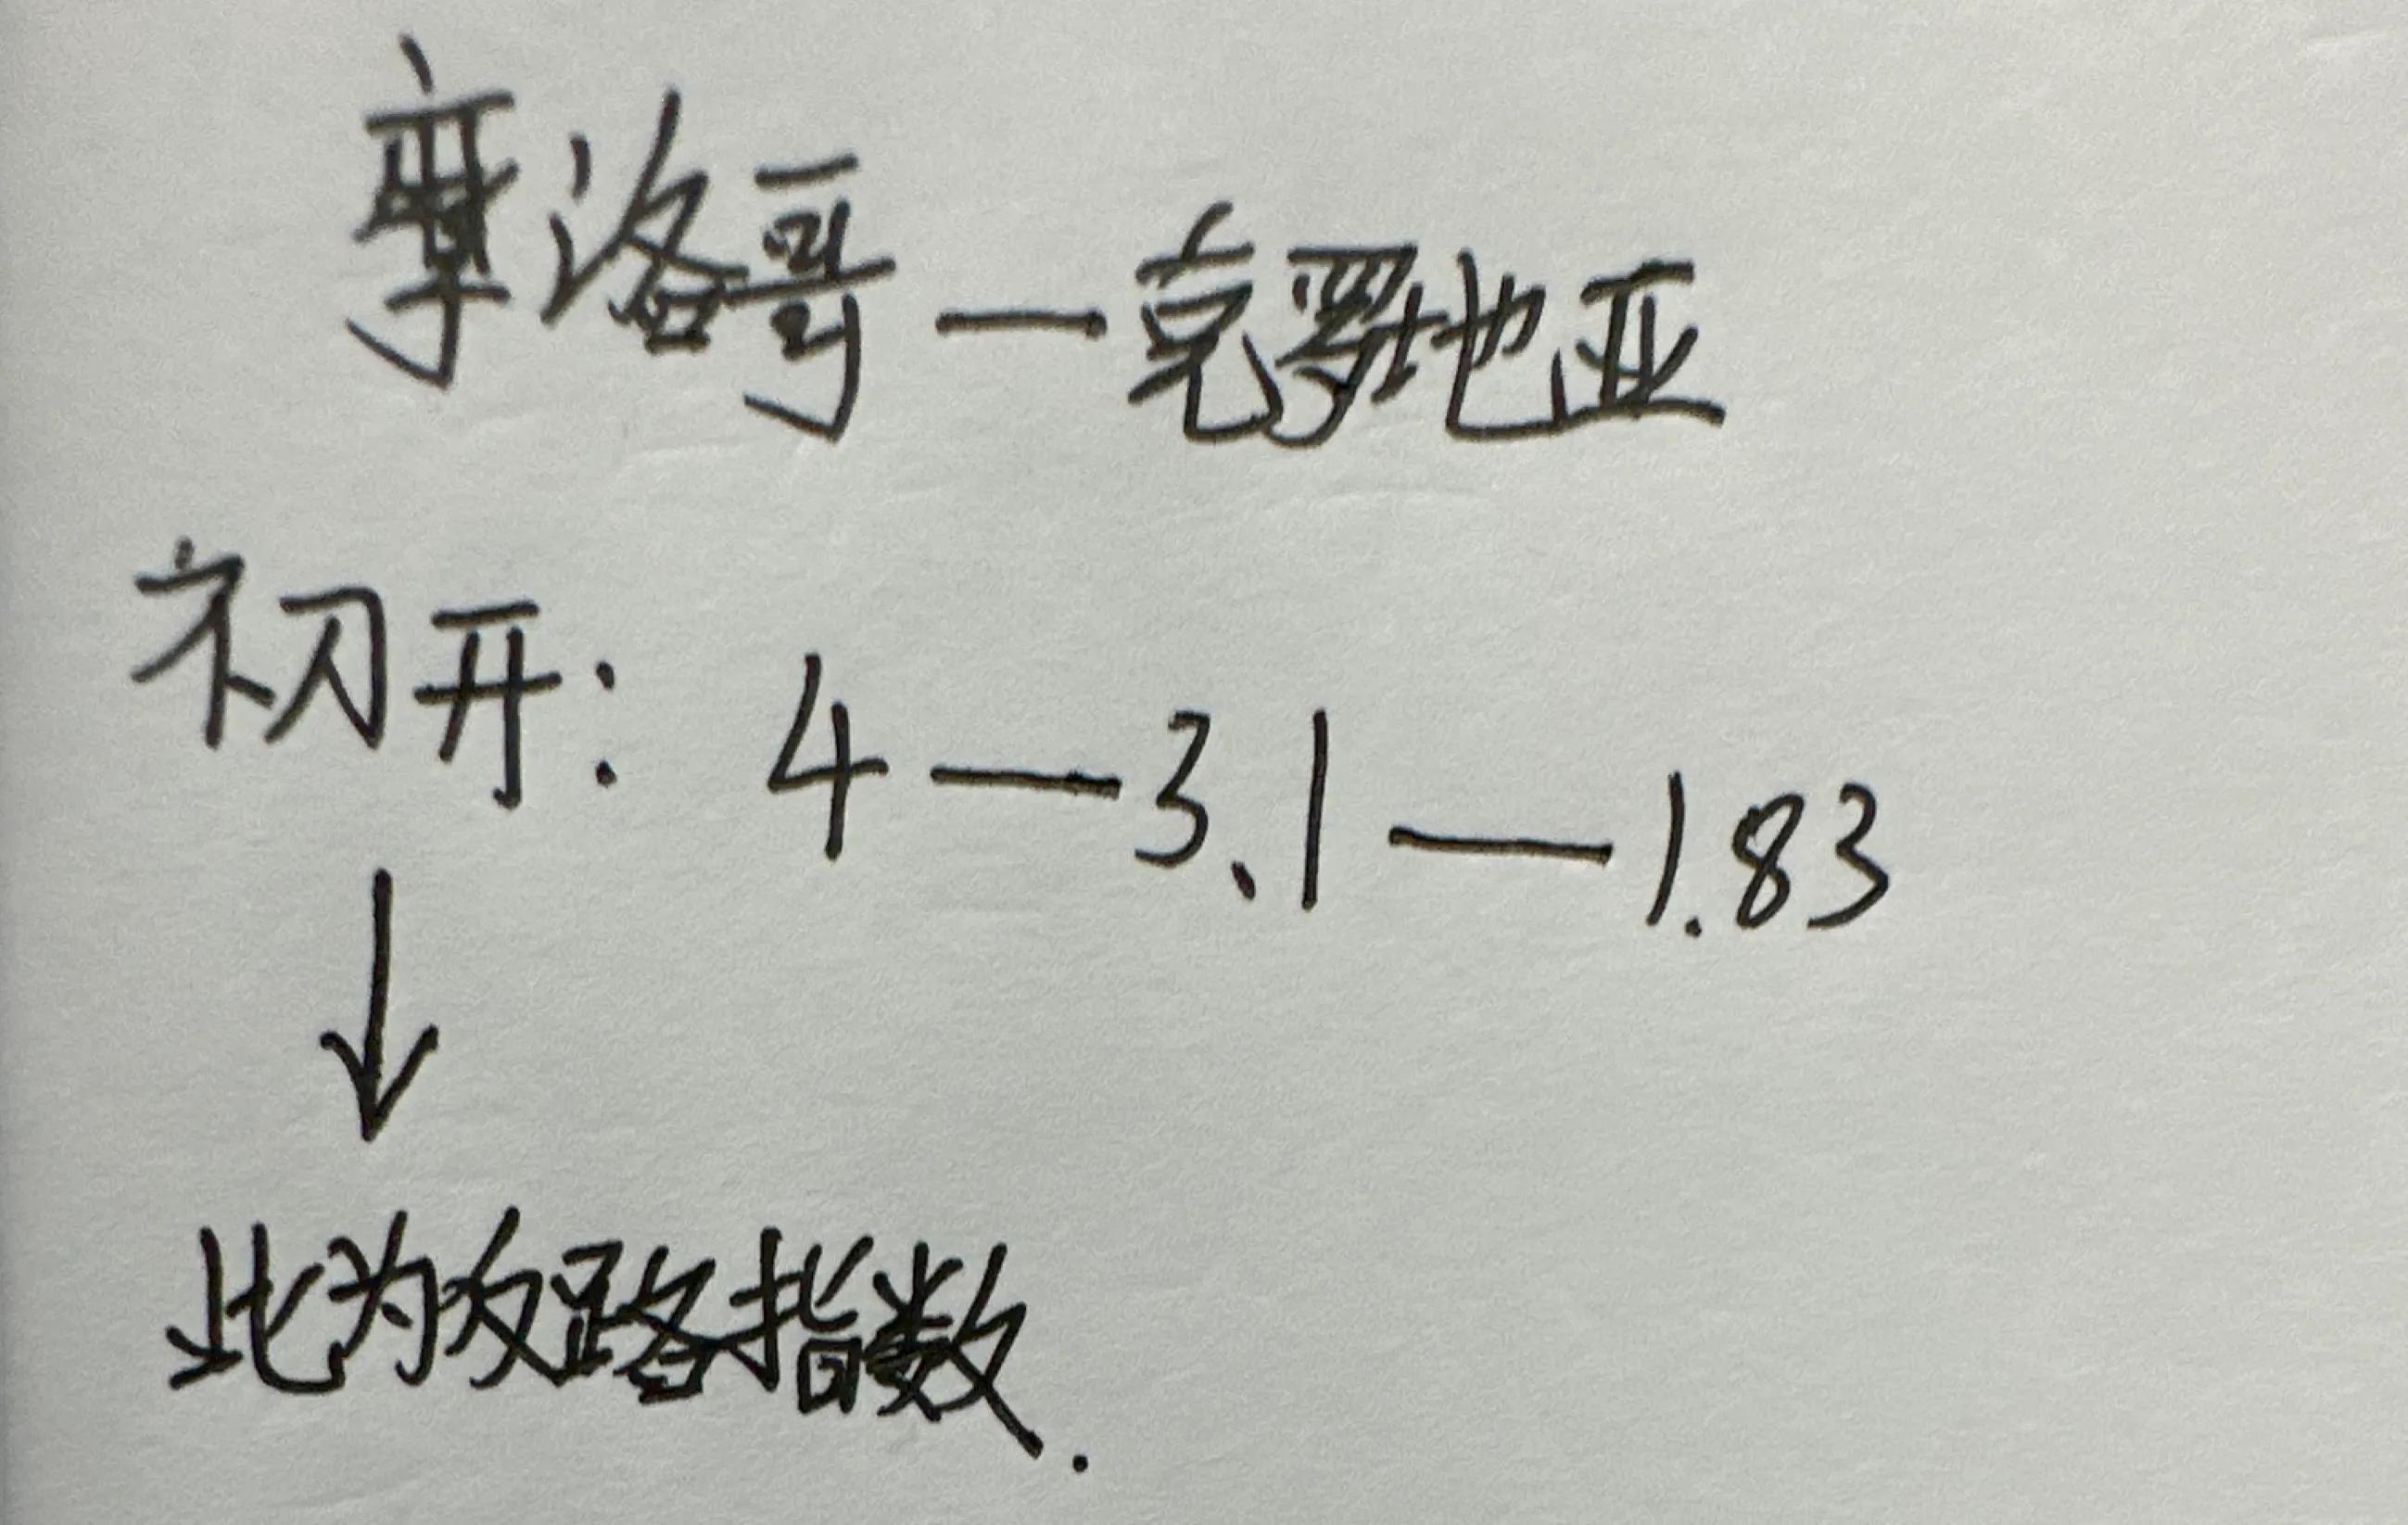 摩洛哥—克罗地亚
初开：4—3.1—1.83
↓
此为反路指数.